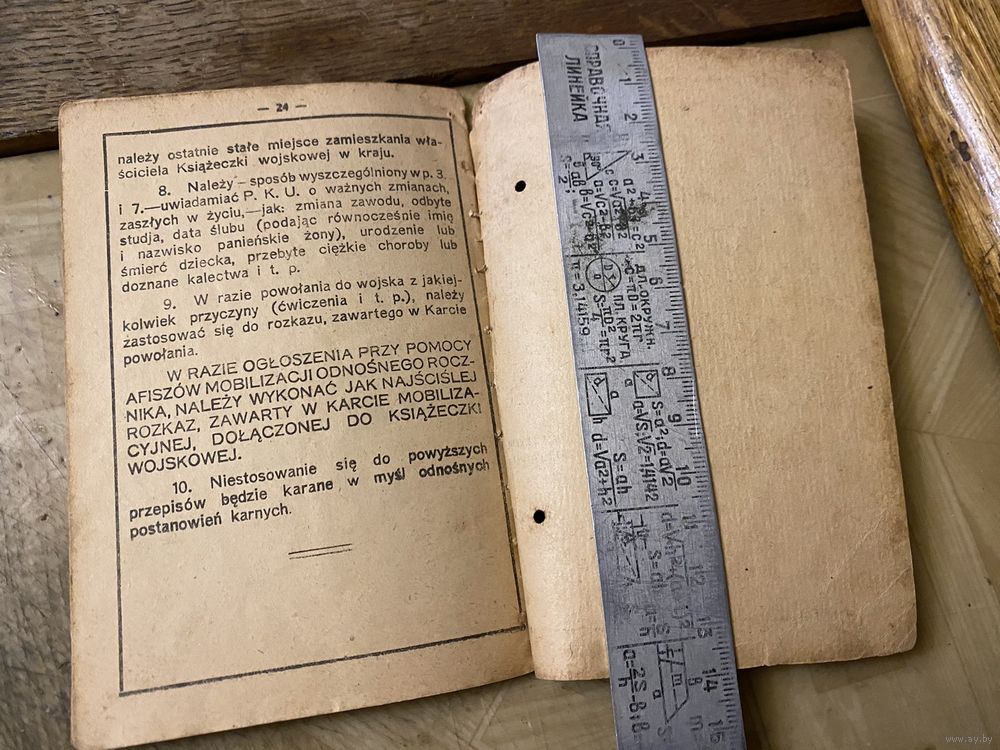 — 24 —
należy ostatnie stałe miejsce zamieszkania wła-
ściciela Książeczki wojskowej w kraju.
8. Należy—sposób wyszczególniony w p. 3.
i 7.—uwiadamiać P. K. U. o ważnych zmianach,
zaszłych w życiu,—jak: zmiana zawodu, odbyte
studja, data ślubu (podając równocześnie imię
i nazwisko panieńskie żony), urodzenie lub
śmierć dziecka, przebyte ciężkie choroby lub
doznane kalectwa i t. p.
9. W razie powołania do wojska z jakiej-
kolwiek przyczyny (ćwiczenia i t. p.), należy
zastosować się do rozkazu, zawartego w Karcie
powołania.
W RAZIE OGŁOSZENIA PRZY POMOCY
AFISZÓW MOBILIZACJI ODNOŚNEGO ROCZ-
NIKA, NALEŻY WYKONAĆ JAK NAJŚCIŚLEJ
ROZKAZ, ZAWARTY W KARCIE MOBILIZA-
CYJNEJ, DOŁĄCZONEJ DO KSIĄŻECZKI
WOJSKOWEJ.
10. Niestosowanie się do powyższych
przepisów będzie karane w myśl odnośnych
postanowień karnych.
СПРАВОЧНАЯ
ЛИНЕЙКА
0 1 2 3 4 5 6 7 8 9 10 11 12 13 14 15
дл. окружн.
C=πD=2πr
пл. круга
π=3,14159...
S=a²; d=a√2
a=√S; √2=1,4142
S=ah
d=√a²+h²
www.ay.by